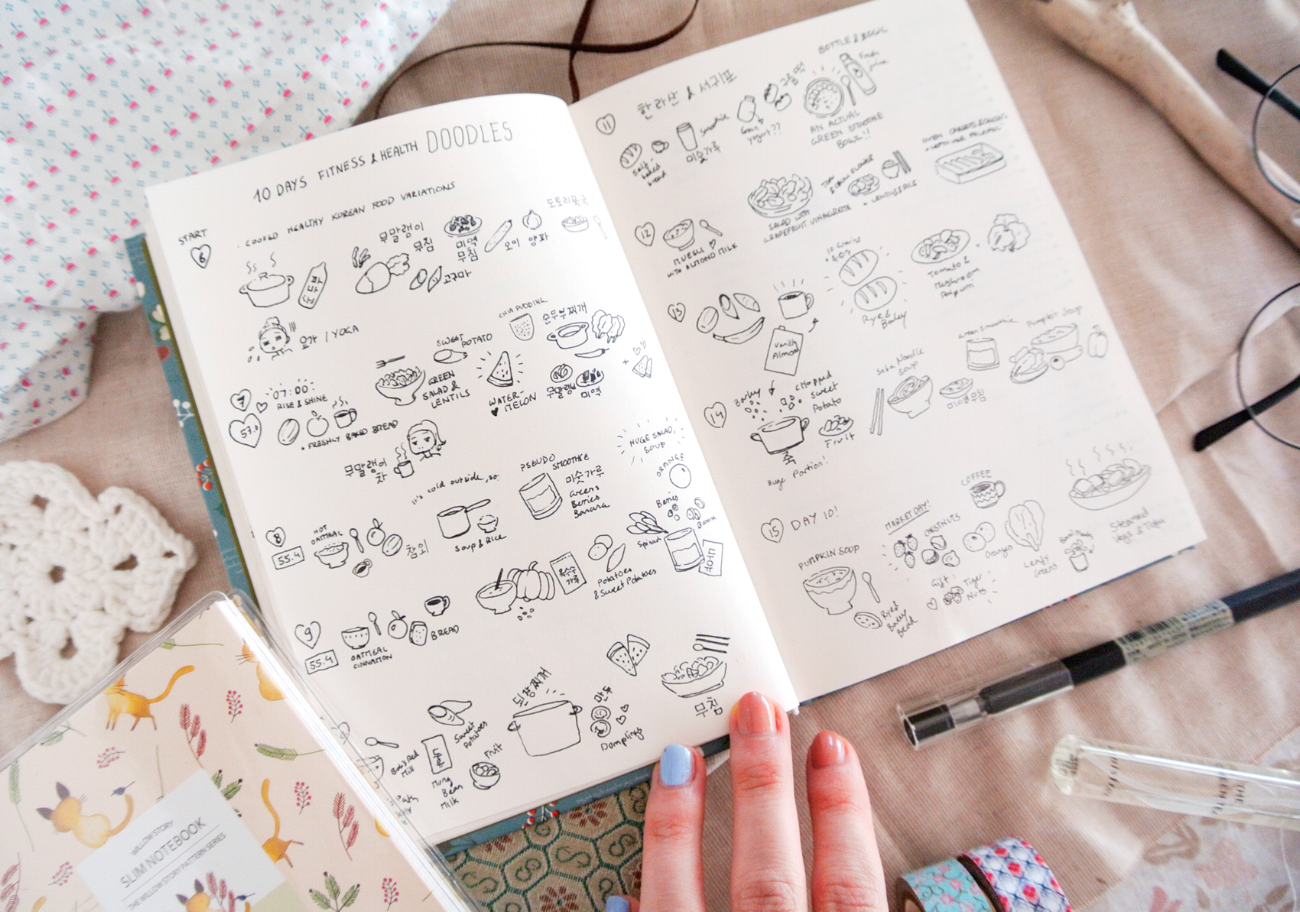 10 DAYS FITNESS & HEALTH DOODLES
START
6
. COOKED HEALTHY KOREAN FOOD VARIATIONS
두부
무말랭이
무침
고구마
미역
무침
오이
양파
도토리묵국
요가 / YOGA
7
57.0
'07:00'
RISE & SHINE
+ FRESHLY BAKED BREAD
GREEN
SALAD &
LENTILS
SWEET
POTATO
WATER
MELON
CHIA PUDDING
순두부찌개
무말랭이
미역
무말랭이
차
8
55.4
HOT
OATMEAL
참외
it's cold outside, so..
Soup & Rice
PSEUDO
SMOOTHIE
미숫가루
Greens
Berries
Banana
HUGE SALAD,
SOUP
ORANGE
Berries
Spinach
9
55.4
OATMEAL
CINNAMON
BREAD
옥수수
가루
Potatoes
& Sweet Potatoes
Milk
Sweet
Potatoes
Mung
Bean
Milk
Fruit
된장찌개
만두
Dumplings
무침
11
한라산 & 서귀포
Self-
baked
bread
Smoothie
미숫가루
yogurt??
AN ACTUAL
GREEN SMOOTHIE
BOWL!!
BOTTLE & BOWL
Fresh
juice
12
MUESLI
WITH ALMOND MILK
SALAD WITH
GRAPEFRUIT VINAIGRETTE
+ LENTILS & RICE
13
Vanilla
Almond
Rye &
Barley
Tomato &
Mushroom
14
Barley
Chopped
Sweet
Potato
죽
Fruit
Huge Portion!
Soba Noodle
Soup
미역무침
Green Smoothie
Pumpkin Soup
15
DAY 10!
PUMPKIN SOUP
Rye &
Barley
Bread
MARKET DAY!
CHESTNUTS
Gift!
Tiger
Nuts
COFFEE
Oranges
Leafy
Greens
Steamed
Veg & Tofu
WILLOW STORY
SLIM NOTEBOOK
THE WILLOW STORY PATTERN SERIES